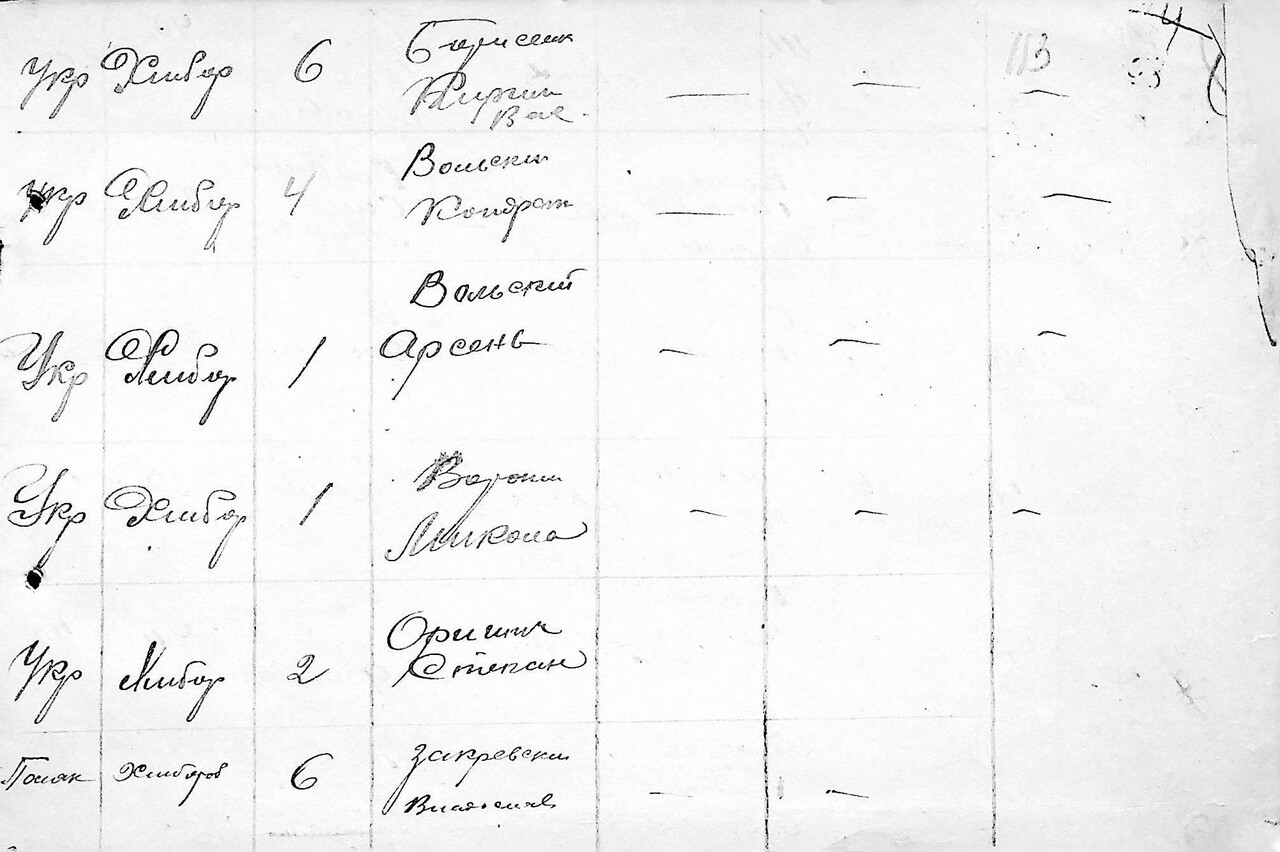 Укр Хлибор 6 Борисюк
Кирил
Вас.
113
Укр Хлибор 4 Вольски
Кондрат
Вольский
Укр Хлибор 1 Арсень
Укр Хлибор 1 Ворони
Микола
Укр Хлибор 2
Степан
Поляк Хлибороб 6 Закревски